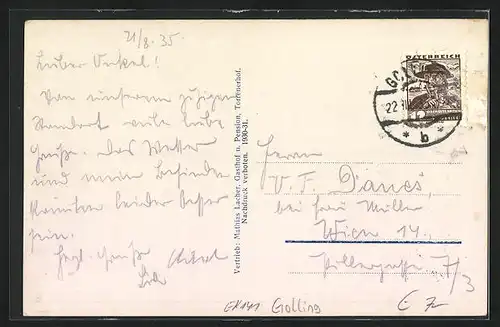 21/8. 35.
Lieber Onkel!
Von unserem
Standort viele liebe
Grüße. Das Wetter
und mein Befinden
könnten leider besser
sein.
Herzl. Grüße
Vertrieb: Mathias Lacher, Gasthof u. Pension, Torrenerhof.
Nachdruck verboten. 1930-31.
ÖSTERREICH
GOLL
22.
* b *
Herrn
V. F. Danes,
bei Frau Müller
Wien 14.,
7/3
Golling